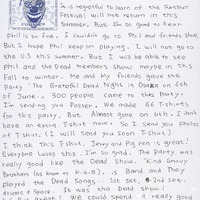 is regretful to learn of the Further
Festival will not return in this
Summer. But I'm so grad to hear
Phil is so fine. I couldn't go to Phil and friends show,
But I hope Phil keep on playing. I will not go to
the U.S this summer. But I will be able to see
phil and the Dead Members show, maybe in this
Fall to winter. Me and My friends gave the
Party "the Grateful Dead Night" in Osaka on 6th
of June. 300 people came to this Party.
I'm sending you Poster. We made 66 T-shirts
for this party. But Almost gone on 6th. I don't
have an extra T-shirt now. So I send you photos
of T-shirt. (I will send you soon T-shirt)
I think this T-shirt, Jerry and Pig pen is great!
Everyone loves this. I'm so grad. The Party was
really good like the Dead Show. "Kind Gravy
Brothers" is Band and They
played the Dead Songs. 1st Set, 2nd set.
drums & Space. It was the Dead show!
We could spend A really good